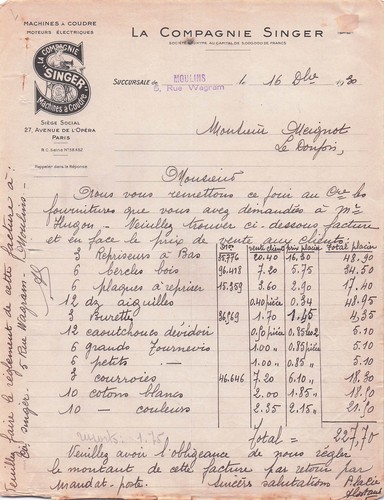 MACHINES A COUDRE
MOTEURS ÉLECTRIQUES
LA COMPAGNIE
"SINGER"
Machines à Coudre
SIÈGE SOCIAL
27, AVENUE DE L'OPÉRA
PARIS
Rappeler dans la Réponse
LA COMPAGNIE SINGER
SOCIÉTÉ ANONYME AU CAPITAL DE 5.000.000 DE FRANCS
SUCCURSALE de MOULINS
5, Rue Wagram
le 16 Dbre 1930
Monsieur Meignot
Le Donjon,
Monsieur
Nous vous remettons ce jour au Ore les
fournitures que vous avez demandées à Mr
Hugon. Veuillez trouver ci-dessous facture
et en face le prix de vente aux clients:
Nos vente clients prix placier Total placier
3 Repriseurs à Bas 35.776 20.40 16.30 48.90
6 Cercles bois 96.428 7.20 5.75 34.50
6 plaques à repriser 15.359 3.60 2.90 17.40
12 dz aiguilles 0.40 pièce 0.34 48.95
3 Burettes 36969 1.70 1.45 4.35
12 caoutchoucs dévidoir 0.50 pièce
6 grands Tournevis 1.00 " 0.85 pièce 5.10
6 petits — 1.00 " 0.85 " 5.10
3 courroies 46.646 7.20 6.10 " 18.30
10 cotons blancs 2.00 1.85 " 18.50
10 — couleurs 2.35 2.15 " 21.50
Total = 227,70
Veuillez avoir l'obligeance de nous régler
le montant de cette facture par retour par
mandat-poste. Sincères salutations
Veuillez faire le règlement de cette facture à:
Cie Singer 5 Rue Wagram - Moulins -